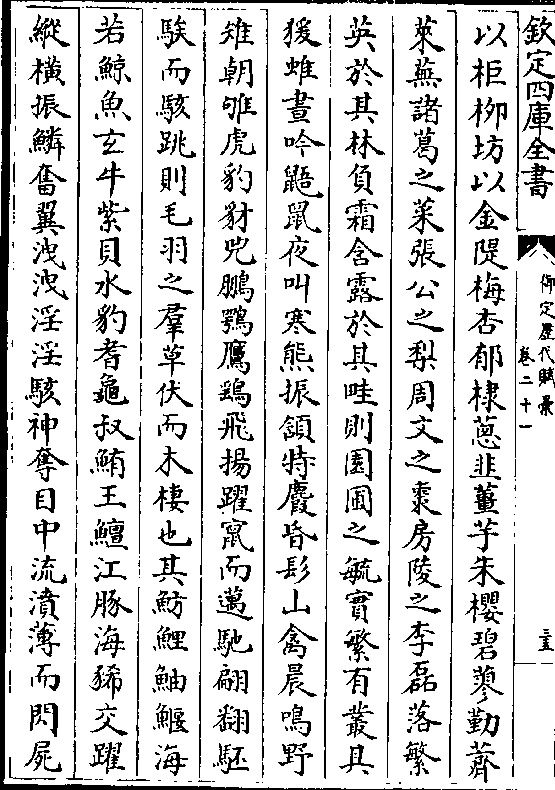 欽定四庫全書
御定歷代賦彙
卷二十一
三五
以柜栁坊以金隄梅杏郁棣葱韭薑芋朱櫻碧蓼勤薺
萊蕪諸葛之菜張公之梨周文之棗房陵之李磊落繁
英於其林負霜含露於其畦則園圃之毓實繁有叢具
猨蜼晝吟鼯鼠夜叫寒熊振頷特麚昏髟山禽晨鳴野
雉朝雊虎豹豺兕鵬鶚鷹鷂飛揚躍竄而邁馳翩翻駓
騃而駭跳則毛羽之羣草伏而木棲也其魴鯉鮋鰋海
若鯨魚玄牛紫貝水豹耆龜叔鮪王鱣江豚海豨交躍
縱横振鱗奮翼洩洩淫淫駭神奪目中流濆薄而閃屍